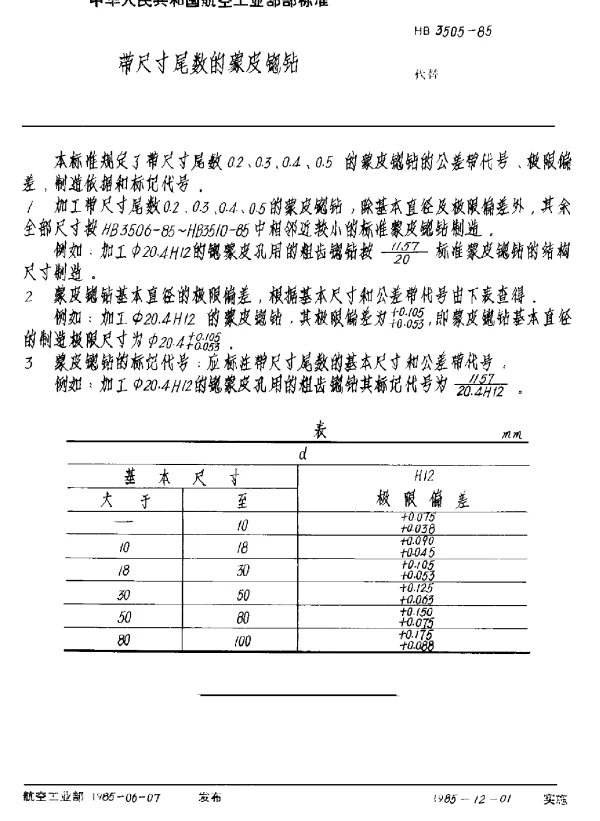 中华人民共和国航空工业部部标准
HB 3505-85
带尺寸尾数的蒙皮锪钻
代替
本标准规定了带尺寸尾数0.2、0.3、0.4、0.5 的蒙皮锪钻的公差带代号、极限偏
差，制造依据和标记代号。
1 加工带尺寸尾数0.2、0.3、0.4、0.5的蒙皮锪钻，除基本直径及极限偏差外，其余
全部尺寸按HB3506-85~HB3510-85中相邻近较小的标准蒙皮锪钻制造。
例如：加工Φ20.4H12的锪蒙皮孔用的粗齿锪钻按 1157/20 标准蒙皮锪钻的结构
尺寸制造。
2 蒙皮锪钻基本直径的极限偏差，根据基本尺寸和公差带代号由下表查得。
例如：加工Φ20.4H12 的蒙皮锪钻，其极限偏差为 +0.105 +0.053，即蒙皮锪钻基本直径
的制造极限尺寸为Φ20.4 +0.105 +0.053。
3 蒙皮锪钻的标记代号：应标注带尺寸尾数的基本尺寸和公差带代号。
例如：加工Φ20.4H12的锪蒙皮孔用的粗齿锪钻其标记代号为 1157/20.4H12 。
表 mm
d
基本尺寸 H12
大于 至 极限偏差
— 10 +0.075 +0.038
10 18 +0.090 +0.045
18 30 +0.105 +0.053
30 50 +0.125 +0.063
50 80 +0.150 +0.075
80 100 +0.175 +0.088
航空工业部 1985-06-07 发布 1985-12-01 实施